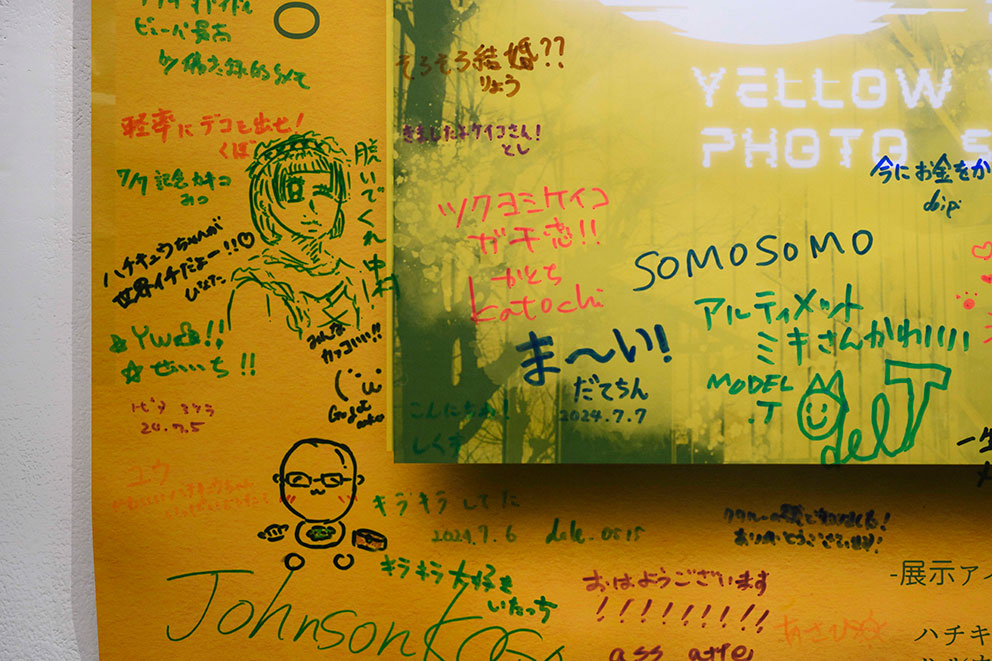 ビューパ最高
そろそろ結婚??
りょう
YELLOW
PHOTO S
軽率にデコを出せ!
くぼ
きましたよケイコさん!
とし
脱いでくれ中村
7/7 記念カキコ
みつ
今にお金をか
doipi
ツクヨミケイコ
ガチ恋!!
かとち
katochi
SOMOSOMO
ハチキュウちゃんが
世界イチだよー!!♡
アルティメット
ミキさんかわいい
みんな
カッコいい!!
ま〜い!
だてちん
2024.7.7
MODEL
.T
delT
☆せいいち!!
24.7.5
こんにちわ!
しくす
ユウ
キラキラしてた
2024.7.6 date.0515
ありがとうございます!
-展示ア
キラキラ大好き
いたっち
おはようございます
!!!!!!!!
Johnson
あさひ
ハチキ